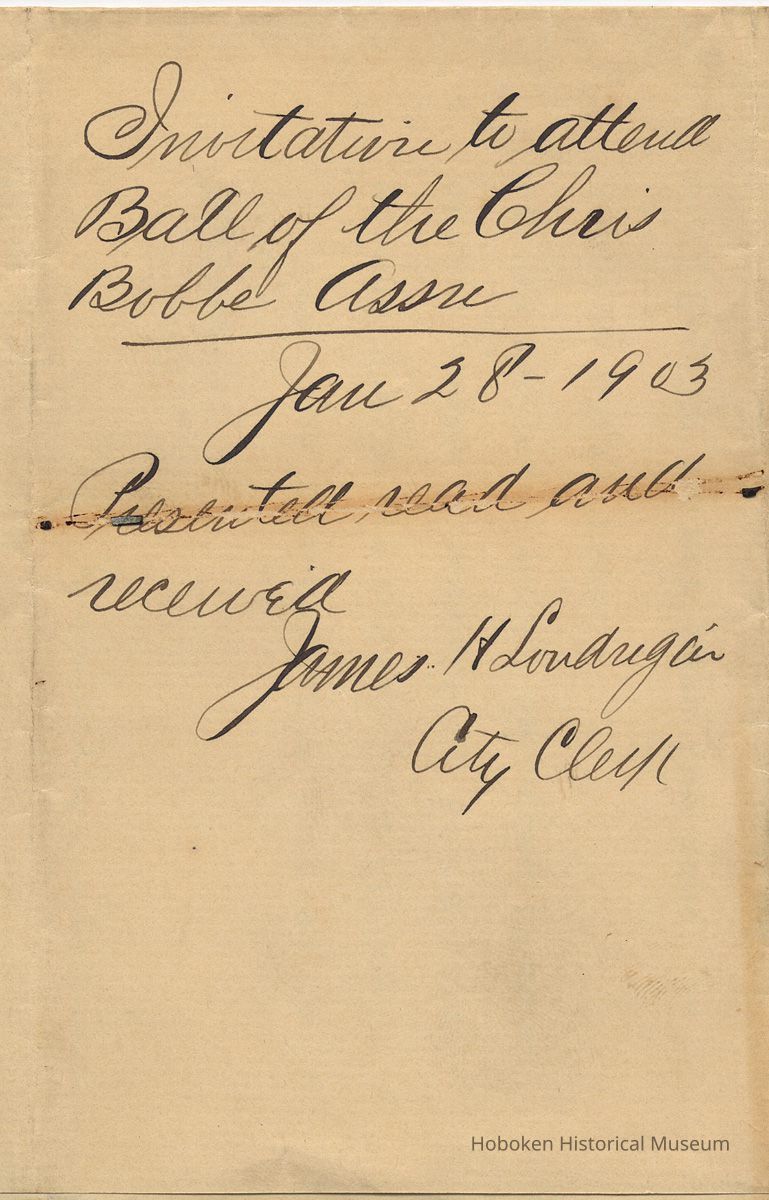 Invitation to attend
Ball of the Chris
Bobbe Assn
Jan 28-1903
Presented, read and
received
James H Londrigan
City Clerk
Hoboken Historical Museum